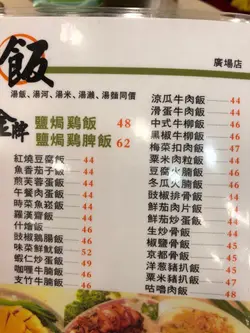 飯
廣場店
湯飯、湯河、湯米、湯瀨、湯麵同價
金牌
鹽焗鷄飯 48
鹽焗鷄脾飯 62
紅燒豆腐飯 44
魚香茄子飯 44
煎芙蓉蛋飯 44
午餐肉蛋飯 44
時菜魚崧飯 44
羅漢齋飯 44
什燴飯 46
豉椒鷄腸飯 46
味菜鮮魷飯 52
蝦仁炒蛋飯 50
咖喱牛腩飯 50
支竹牛腩飯 50
涼瓜牛肉飯 44
滑蛋牛肉飯 44
中式牛柳飯 44
黑椒牛柳飯 44
梅菜扣肉飯 44
粟米肉粒飯 44
豆腐火腩飯 44
冬瓜火腩飯 44
豉椒排骨飯 44
鮮茄肉片飯 44
鮮茄炒蛋飯 44
生炒骨飯 44
椒鹽骨飯 45
京都骨飯 45
洋葱豬扒飯 45
粟米豬扒飯 47
咕嚕肉飯 48